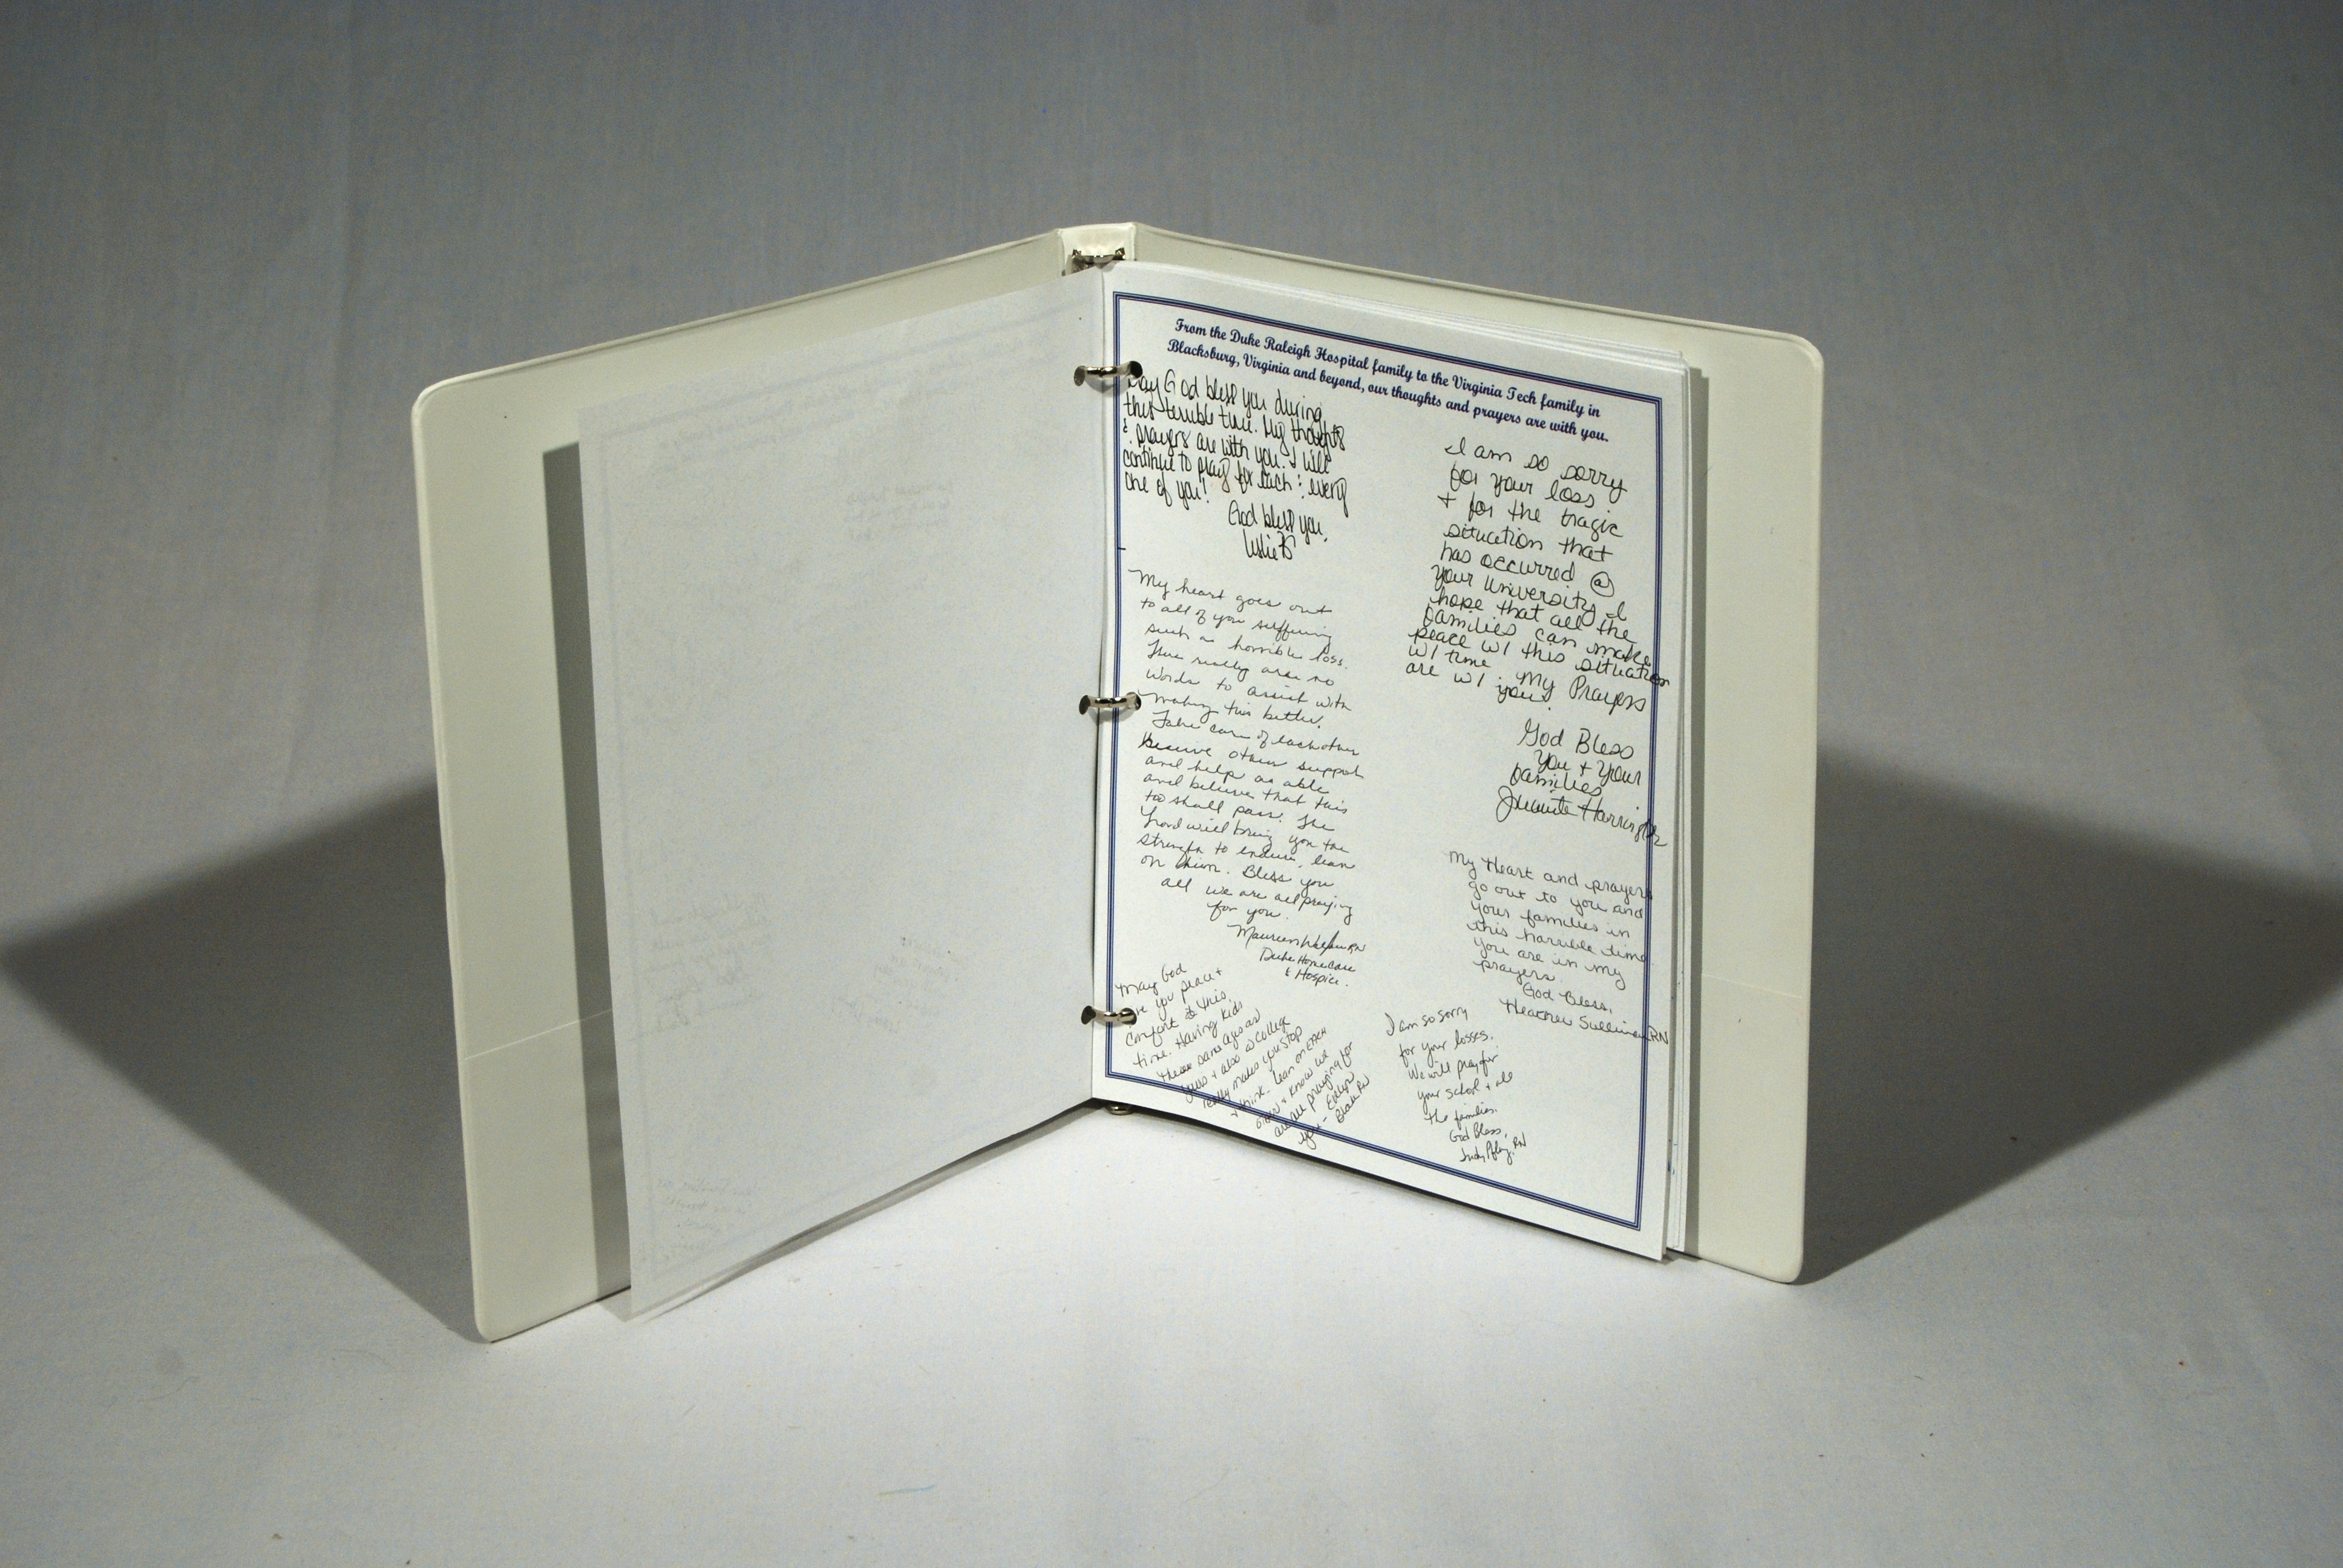 From the Duke Raleigh Hospital family to the Virginia Tech family in
Blacksburg, Virginia and beyond, our thoughts and prayers are with you.
May God bless you during
this terrible time. My thoughts
& prayers are with you. I will
continue to pray for each & every
one of you!
God bless you.
Leslie
My heart goes out
to all of you suffering
such a horrible loss.
There really are no
words to assist with
making this better.
Take care of each other
receive others support
and help as able
and believe that this
to shall pass. The
Lord will bring you the
strength to endure, lean
on him. Bless you
all we are all praying
for you.
Maureen RN
Duke Home Care
& Hospice.
May God
you peace +
comfort this
time. Having kids
these same ages as
yours + also in college
really makes you stop
+ think. Lean on each
other + know we
are all praying for
you -
RN
I am so sorry
for your loss
+ for the tragic
situation that
has occurred @
your University. I
hope that all the
families can make
peace w/ this situation
w/ time. My Prayers
are w/ you.
God Bless
You + Your
families
Juanita Harrington
My Heart and prayers
go out to you and
your families in
this horrible time.
you are in my
prayers.
God Bless,
Heather Sullivan RN
I am so sorry
for your losses.
We will pray for
your school + all
the families.
God Bless,
Judy RN